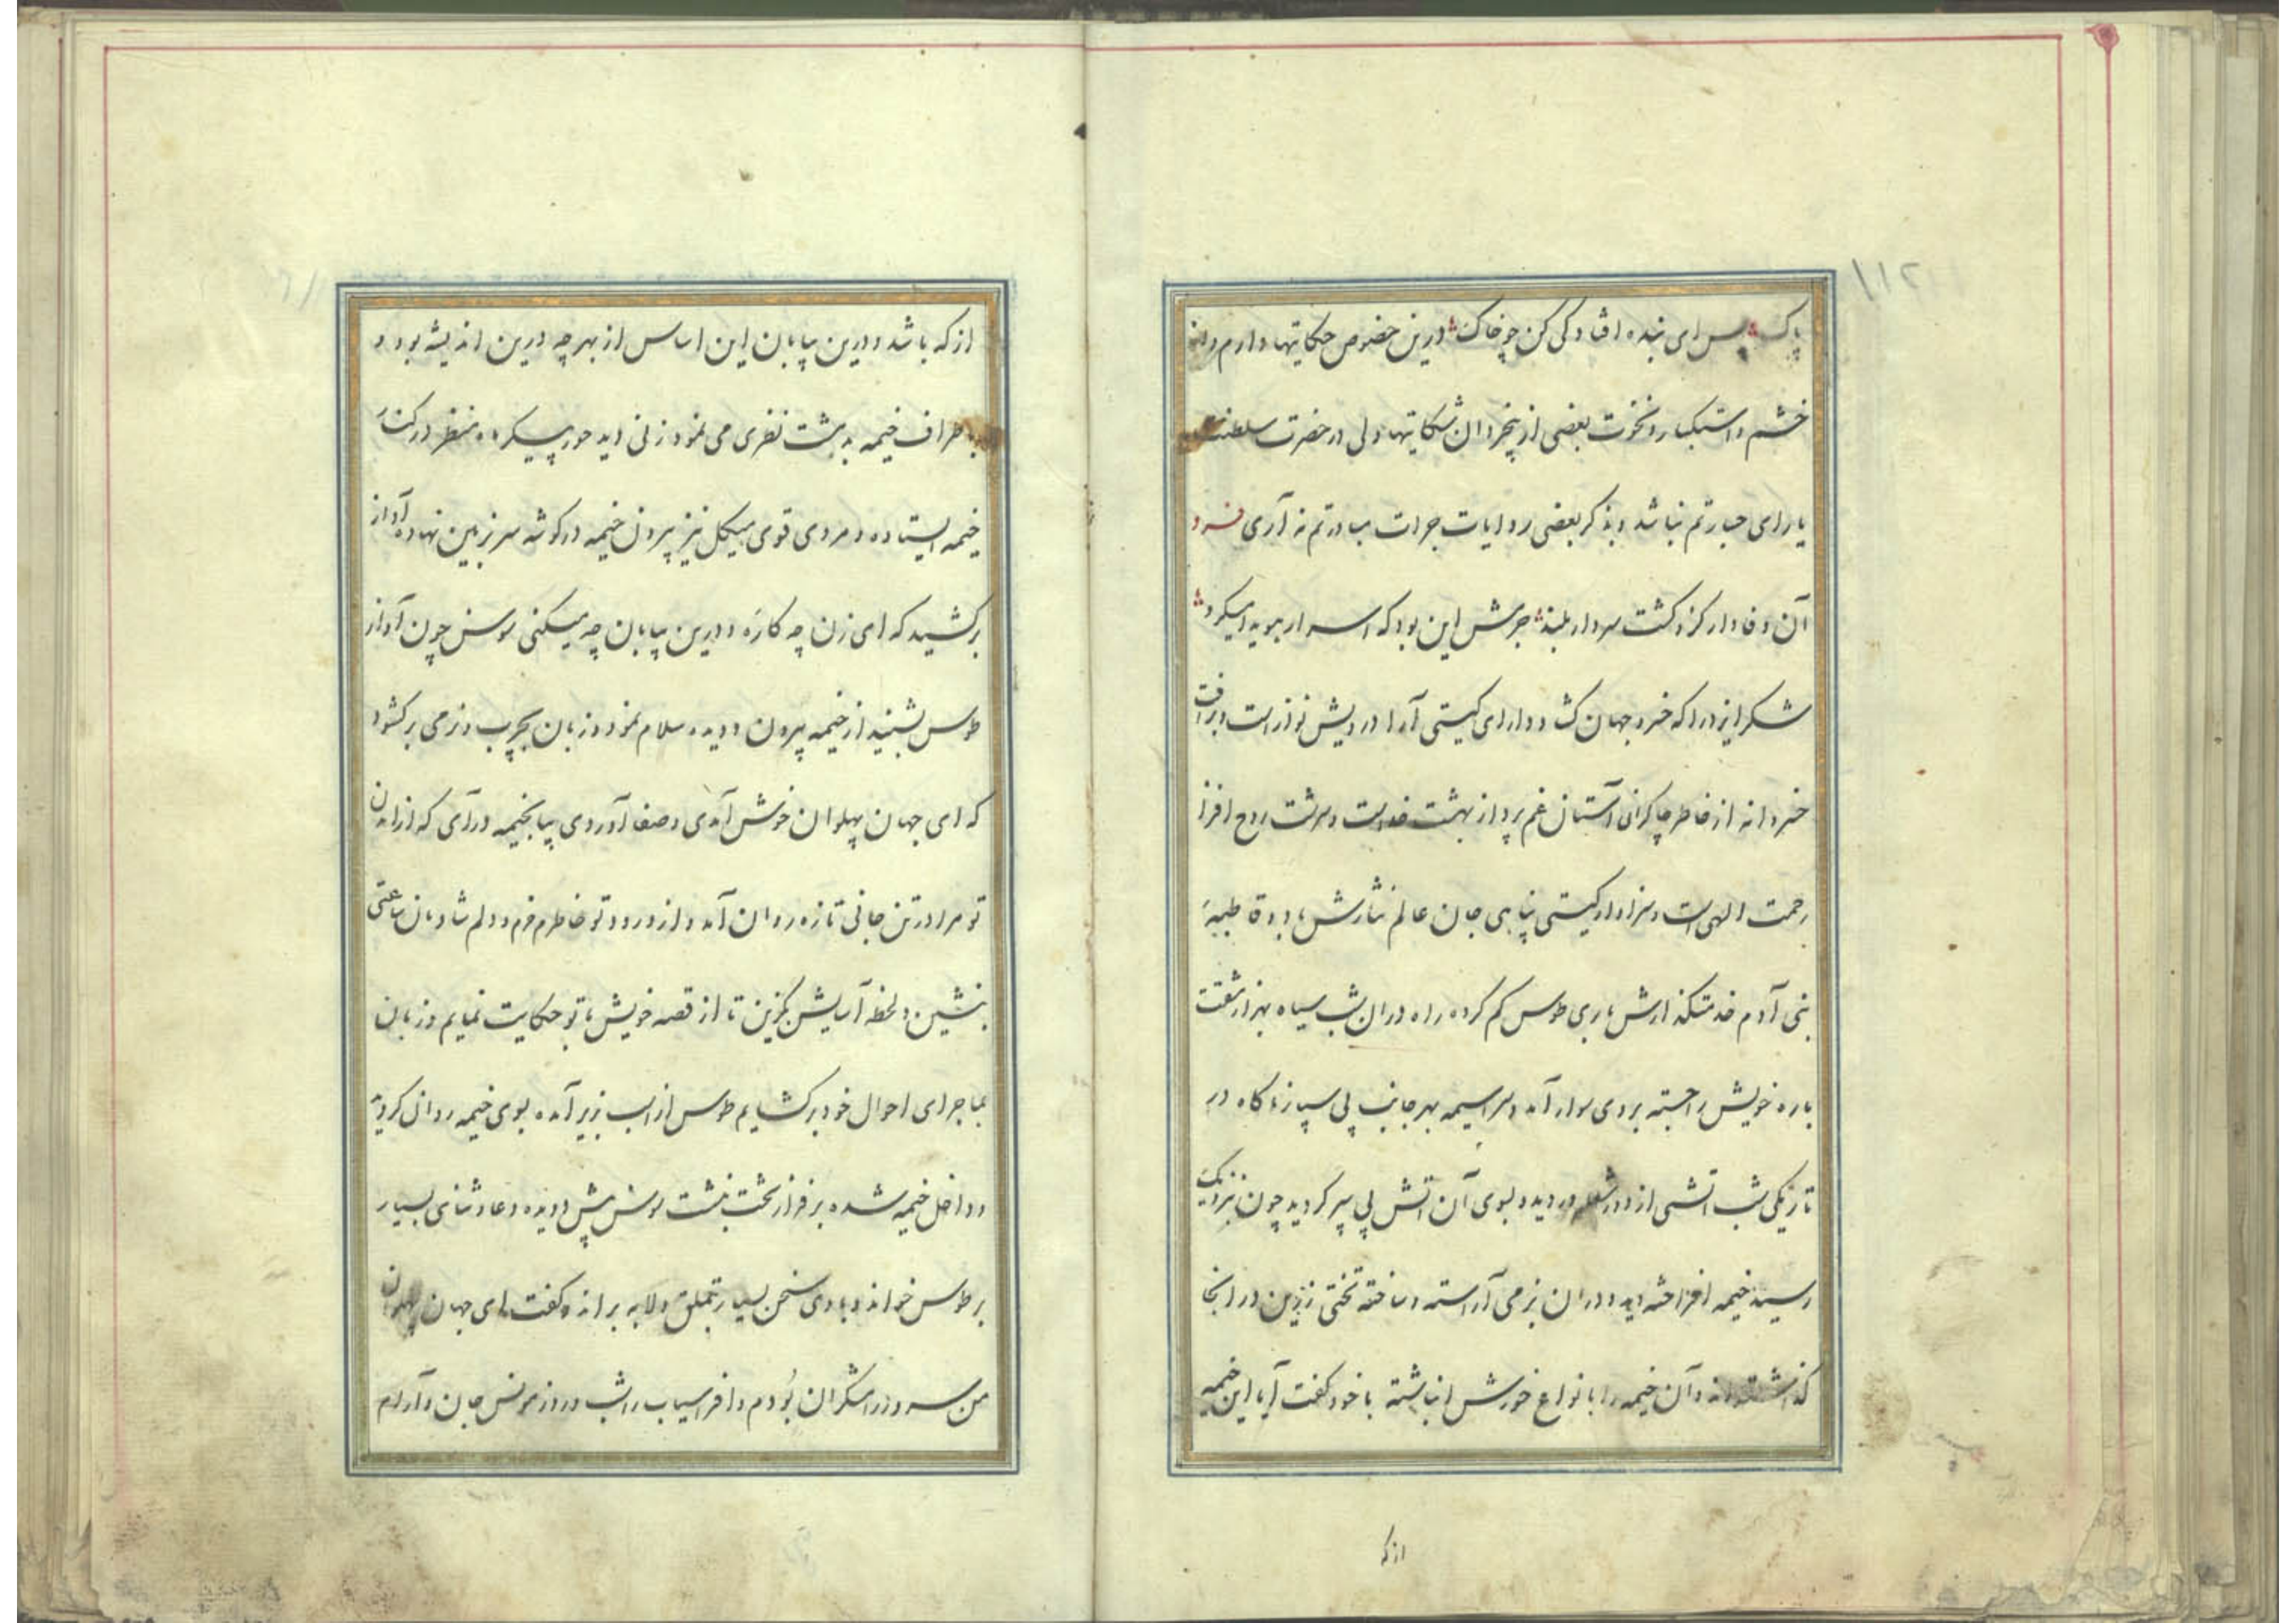 ۱۱۲
پاک پس ای بنده افتادگی کن چو خاک درین خصوص حکایتها دارم و از
خشم و استکبار و نخوت بعضی از بیخردان شکایتها ولی در حضرت سلطنت
یارای جسارتم نباشد و بذکر بعضی روایات جرات مبادرتم نه آری فرد
آن وفادار کزو گشت سر دار بلند جرمش این بود که اسرار هویدا میکرد
شکر ایزد را که خسرو جهان گشا و دارای گیتی آرا درویش نواز است و برافت
خسروانه از خاطر چاکران آستان غم پرداز بهشت خداست و سرشت روح افزا
رحمت الهی است و سزاوار گیتی پناهی جان عالم نثارش باد و قاطبهٔ
بنی آدم خدمتگذارش باری طوس گم کرده راه در ان شب سیاه بهزار مشقت
باره خویش را جسته بر وی سوار آمد و سراسیمه بهر جانب پی سپار ناگاه در
تاریکی شب اتشی از دور شعله ور دید و بسوی آن اتش پی سپر گردید چون نزدیک
رسید خیمه افراخته دید و در ان بزمی آراسته و ساخته تختی زرین در انجا
گذاشته‌اند و آن خیمه را بانواع خورش انباشته با خود گفت آیا این خیمه
از که
از که باشد و درین بیابان این اساس از بهر چه درین اندیشه بود و
باطراف خیمه بدهشت نظری می نمود زنی دید حور پیکر ماه منظر در کنار
خیمه ایستاده و مردی قوی هیکل نیز بیرون خیمه در گوشه سر بزمین نهاده آواز
برکشید که ای زن چه کارهٔ و درین بیابان چه میکنی سوسن چون آواز
طوس بشنید از خیمه بیرون دویده سلام نمود و زبان بچرب و نرمی برگشود
که ای جهان پهلوان خوش آمدی و صفا آوردی بیا بخیمه درآی که از آمدن
تو مرا در تن جانی تازه روان آمد و از ورود تو خاطرم خرم و دلم شادمان ساعتی
بنشین و لحظه آسایش گزین تا از قصه خویش با تو حکایت نمایم و زبان
بماجرای احوال خود برگشایم طوس از اسب زیر آمده بسوی خیمه روان گردید
و داخل خیمه شده بر فراز تخت بنشست سوسن پیش دویده دعا و ثنای بسیار
بر طوس خواند و با وی سخن بسیار بتملق و لابه براند و گفت ای جهان پهلوان
من سرور رامشگران بودم و افراسیاب را شب و روز مونس جان و آرام